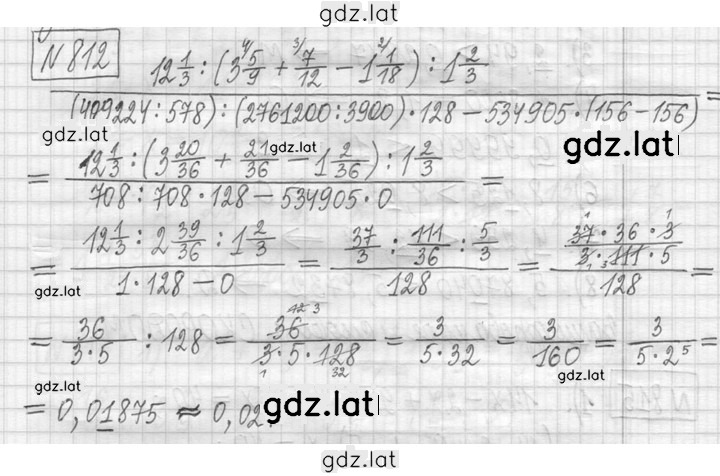 gdz.lat
N 812
(12 1/3 : (3 5/9 + 7/12 − 1 1/18) : 1 2/3) / ((409224 : 578) : (2761200 : 3900) · 128 − 534905 · (156 − 156)) =
gdz.lat gdz.lat gdz.lat
= (12 1/3 : (3 20/36 + 21/36 − 1 2/36) : 1 2/3) / (708 : 708 · 128 − 534905 · 0) =
= (12 1/3 : 2 39/36 : 1 2/3) / (1 · 128 − 0) = (37/3 : 111/36 : 5/3) / 128 = ((37 · 36 · 3) / (3 · 111 · 5)) / 128 =
gdz.lat gdz.lat
= 36/(3 · 5) : 128 = 36/(3 · 5 · 128) = 3/(5 · 32) = 3/160 = 3/(5 · 2⁵) =
gdz.lat gdz.lat
= 0,01875 ≈ 0,02.
gdz.lat
gdz.lat